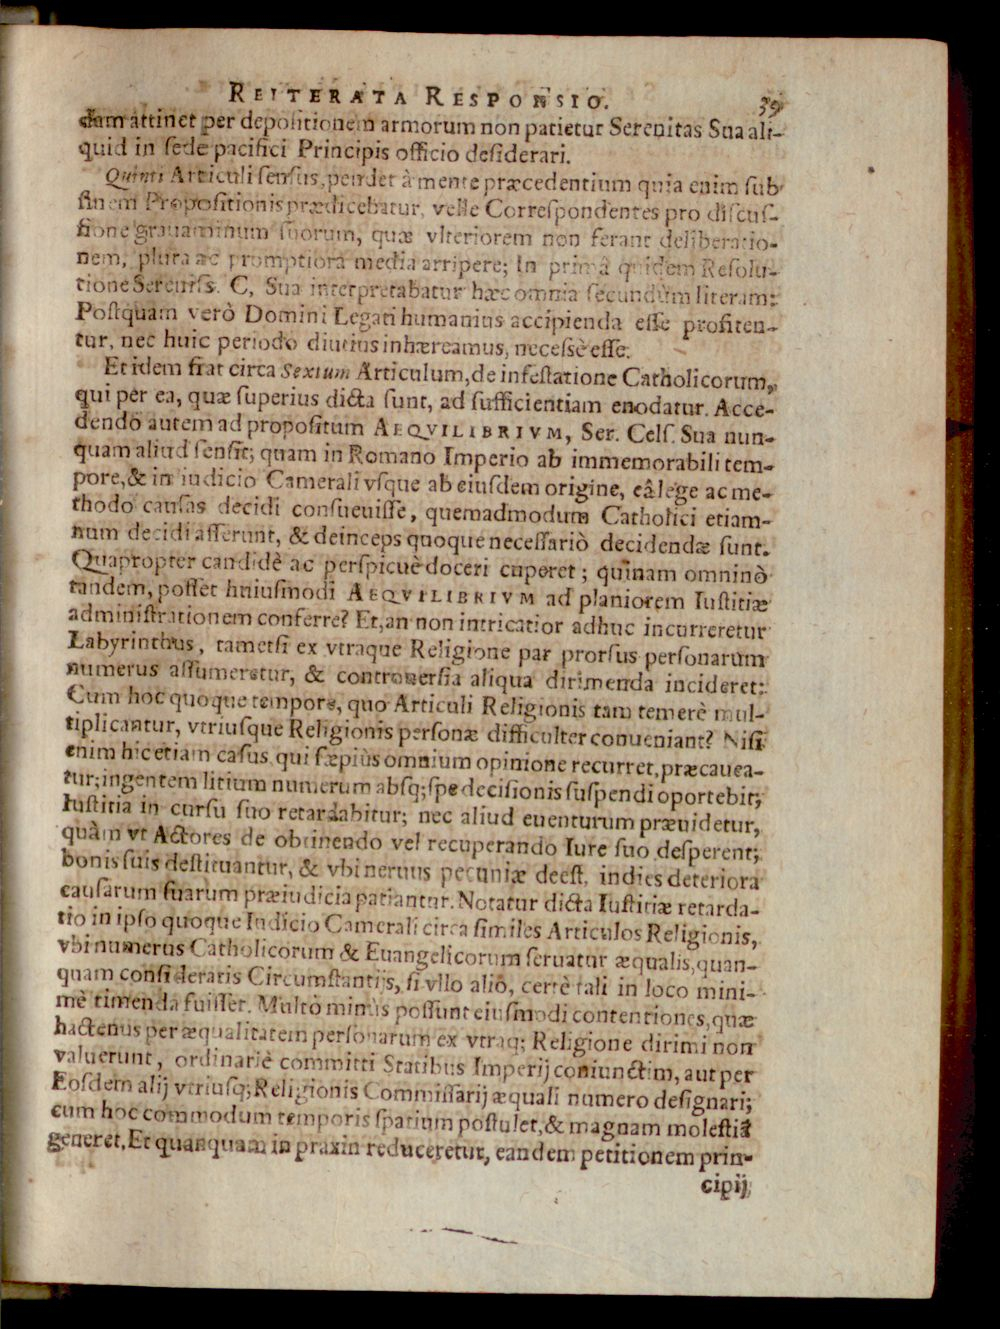 REITERATA RESPONSIO. 39
dam attinet per depositionem armorum non patietur Serenitas Sua ali-
quid in sede pacifici Principis officio desiderari.
Quinti Articuli sensus, pendet à mente præcedentium quia enim sub
finem Propositionis prædicebatur, velle Correspondentes pro discus-
sione grauaminum suorum, quæ vlteriorem non ferant deliberatio-
nem, plura ac promptiora media arripere; In primâ quidem Resolu-
tione Sereniss. C, Sua interpretabatur hæc omnia secundùm literam:
Postquam verò Domini Legati humanius accipienda esse profiten-
tur, nec huic periodo diutius inhæreamus, necesse esse.
Et idem fiat circa Sextum Articulum, de infestatione Catholicorum,
qui per ea, quæ superius dicta sunt, ad sufficientiam enodatur. Acce-
dendo autem ad propositum AEQVILIBRIVM, Ser. Cels. Sua nun-
quam aliud sensit; quam in Romano Imperio ab immemorabili tem-
pore, & in iudicio Camerali vsque ab eiusdem origine, eâ lege ac me-
thodo causas decidi consueuisse, quemadmodum Catholici etiam-
num decidi asserunt, & deinceps quoque necessariò decidendæ sunt.
Quapropter candidè ac perspicuè doceri cuperet; quînam omninò
tandem, posset huiusmodi AEQVILIBRIVM ad planiorem Iustitiæ
administrationem conferre? Et, an non intricatior adhuc incurreretur
Labyrinthus, tametsi ex vtraque Religione par prorsus personarum
numerus assumeretur, & controuersia aliqua dirimenda incideret:
Cum hoc quoque tempore, quo Articuli Religionis tam temerè mul-
tiplicantur, vtriusque Religionis personæ difficulter conueniant? Nisi
enim hic etiam casus, qui sæpiùs omnium opinione recurret, præcauea-
tur; ingentem litium numerum absq; spe decisionis suspendi oportebit;
Iustitia in cursu suo retardabitur; nec aliud euenturum præuidetur,
quàm vt Actores de obtinendo vel recuperando Iure suo desperent;
bonis suis destituantur, & vbi neruus pecuniæ deest, indies deteriora
causarum suarum præiudicia patiantur. Notatur dicta Iustitiæ retarda-
tio in ipso quoque Iudicio Camerali circa similes Articulos Religionis,
vbi numerus Catholicorum & Euangelicorum seruatur æqualis, quan-
quam consideratis Circumstantijs, si vllo aliò, certè tali in loco mini-
mè timenda fuisset. Multò minùs possunt eiusmodi contentiones, quæ
hactenus per æqualitatem personarum ex vtraq; Religione dirimi non
valuerunt, ordinariè committi Statibus Imperij coniunctim, aut per
Eosdem alij vtriusq; Religionis Commissarij æquali numero designari;
cum hoc commodum temporis spatium postulet, & magnam molestiã
generet, Et quanquam in praxin reduceretur, eandem petitionem prin-
cipij